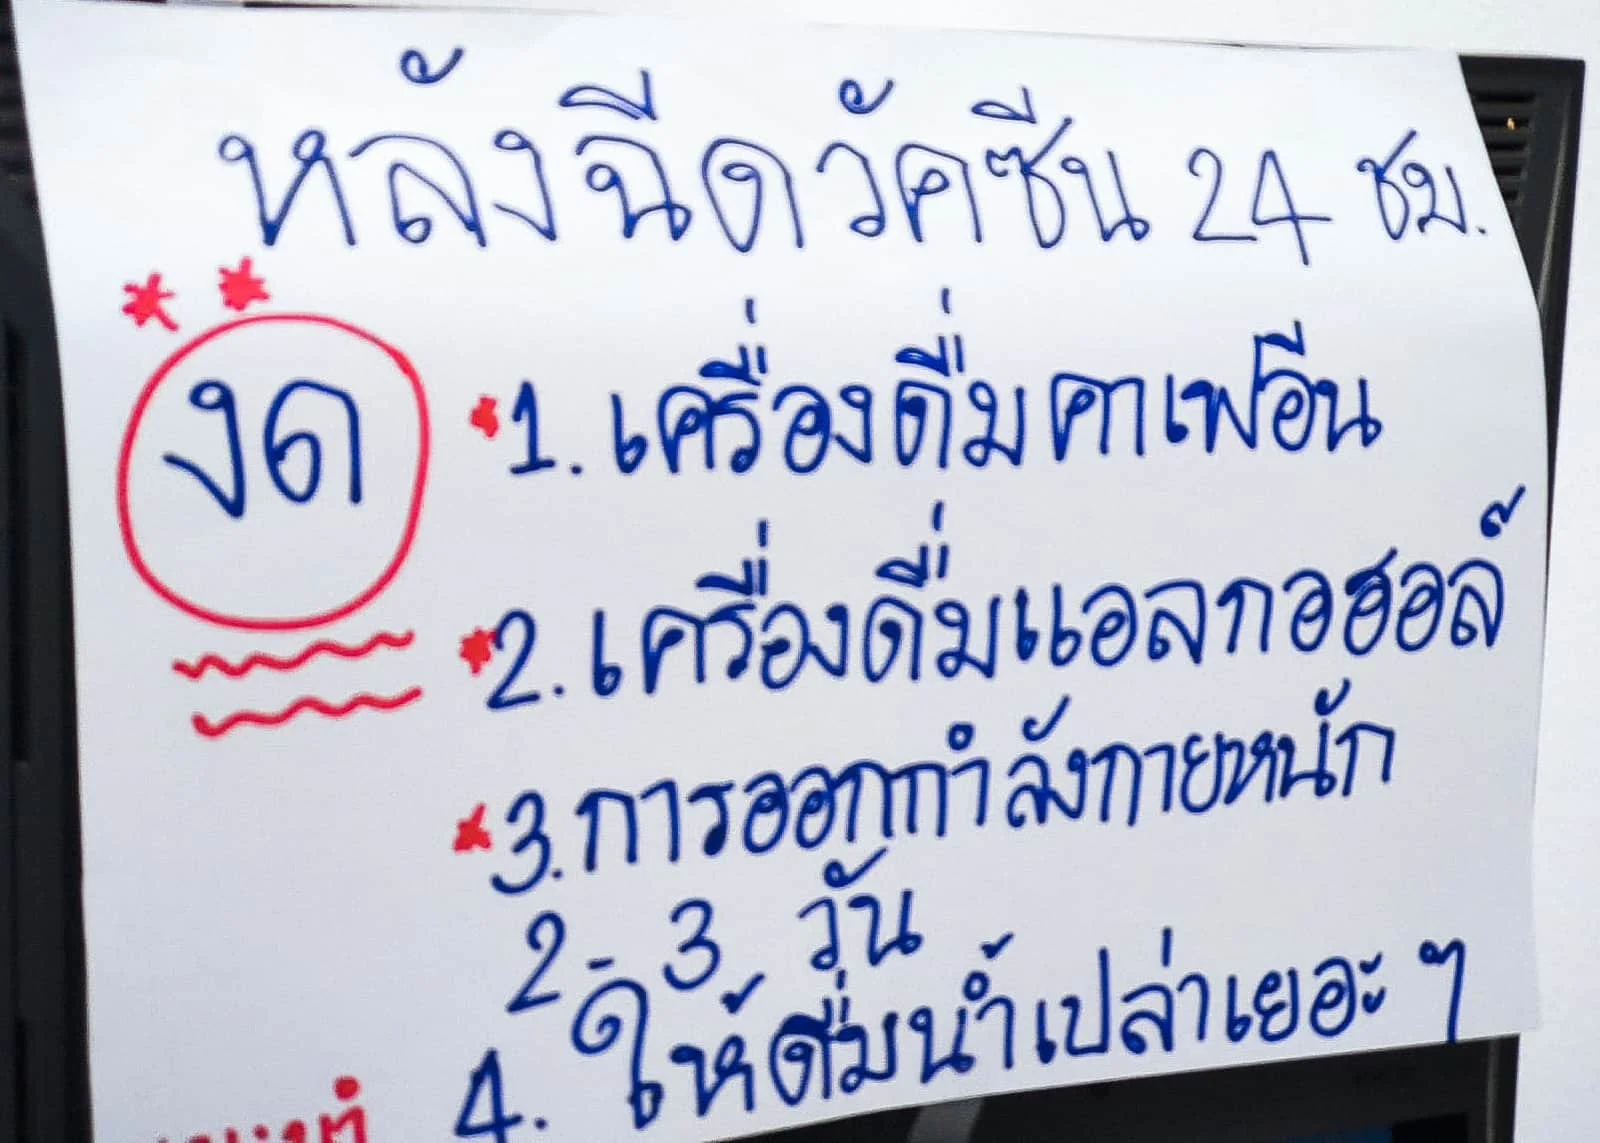 หลังฉีดวัคซีน 24 ชม.
** งด
*1. เครื่องดื่มคาเฟอีน
*2. เครื่องดื่มแอลกอฮอล์
*3. การออกกำลังกายหนัก
2-3 วัน
4. ให้ดื่มน้ำเปล่าเยอะ ๆ